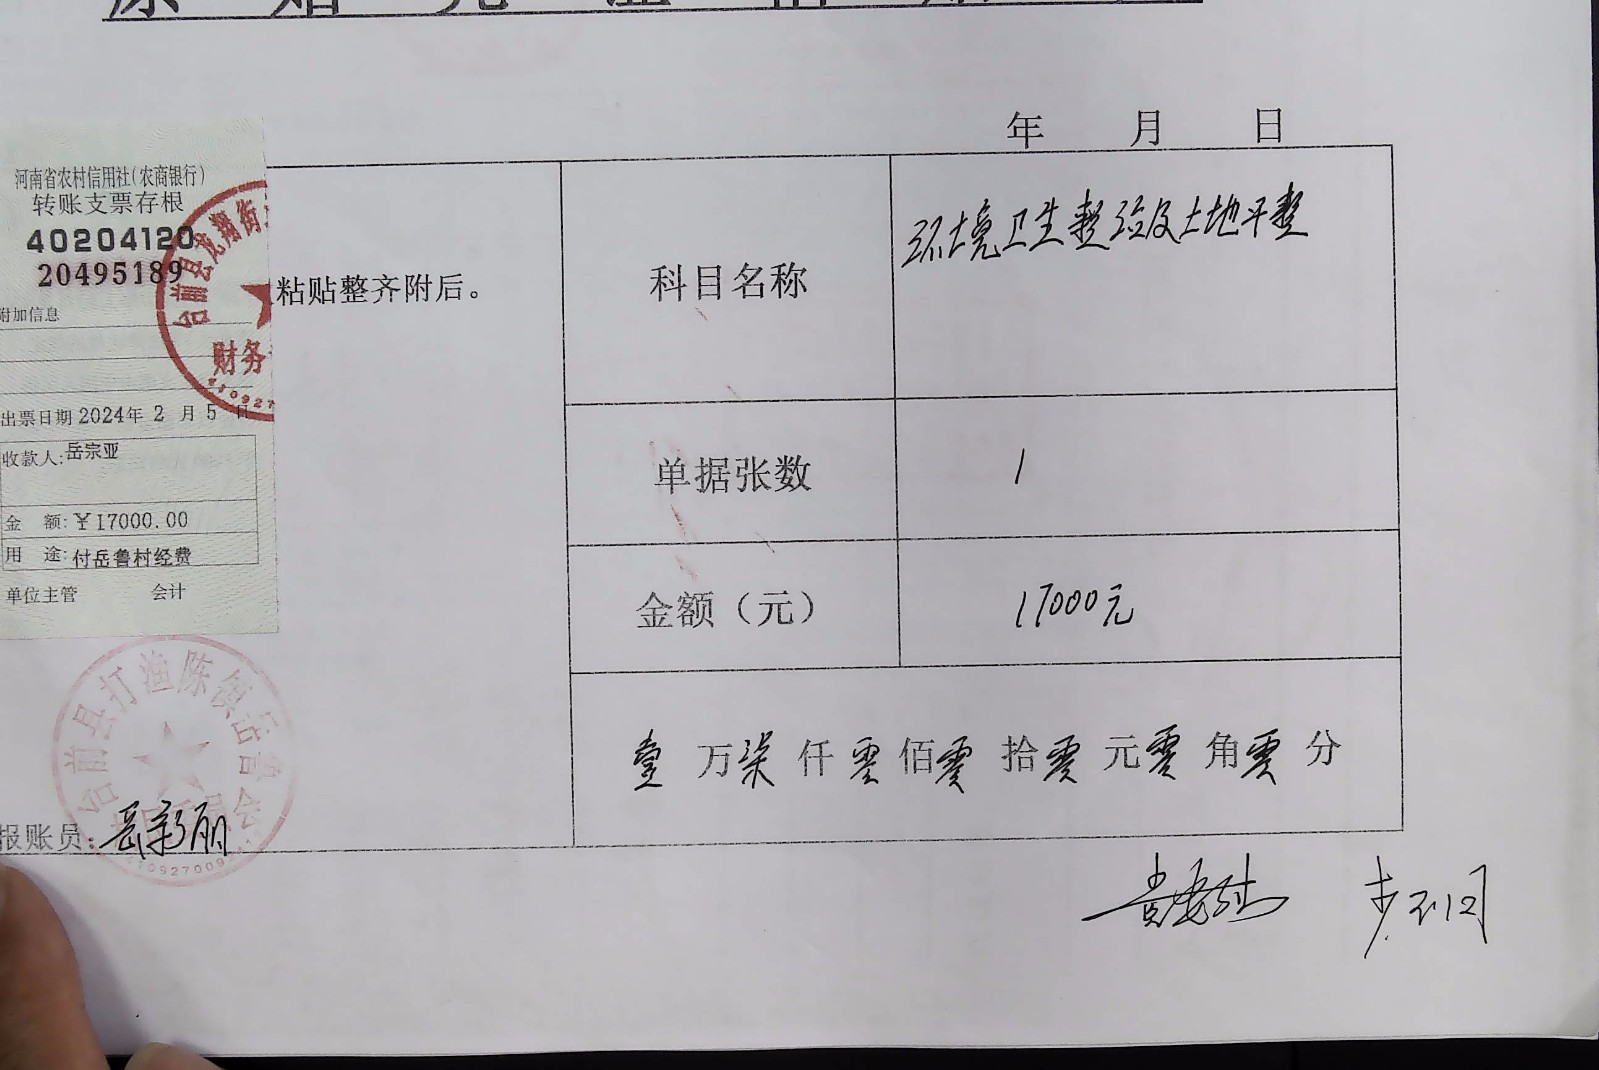 年 月 日
河南省农村信用社(农商银行)
转账支票存根
40204120
20495189
附加信息
台前县龙翔街
财务
出票日期 2024年 2 月 5 日
收款人: 岳宗亚
金 额: ¥17000.00
用 途: 付岳鲁村经费
单位主管 会计
粘贴整齐附后。
科目名称 环境卫生整治及土地平整
单据张数 1
金额（元） 17000元
壹 万 柒 仟 零 佰 零 拾 零 元 零 角 零 分
台前县打渔陈镇岳鲁会
报账员: 岳彩丽